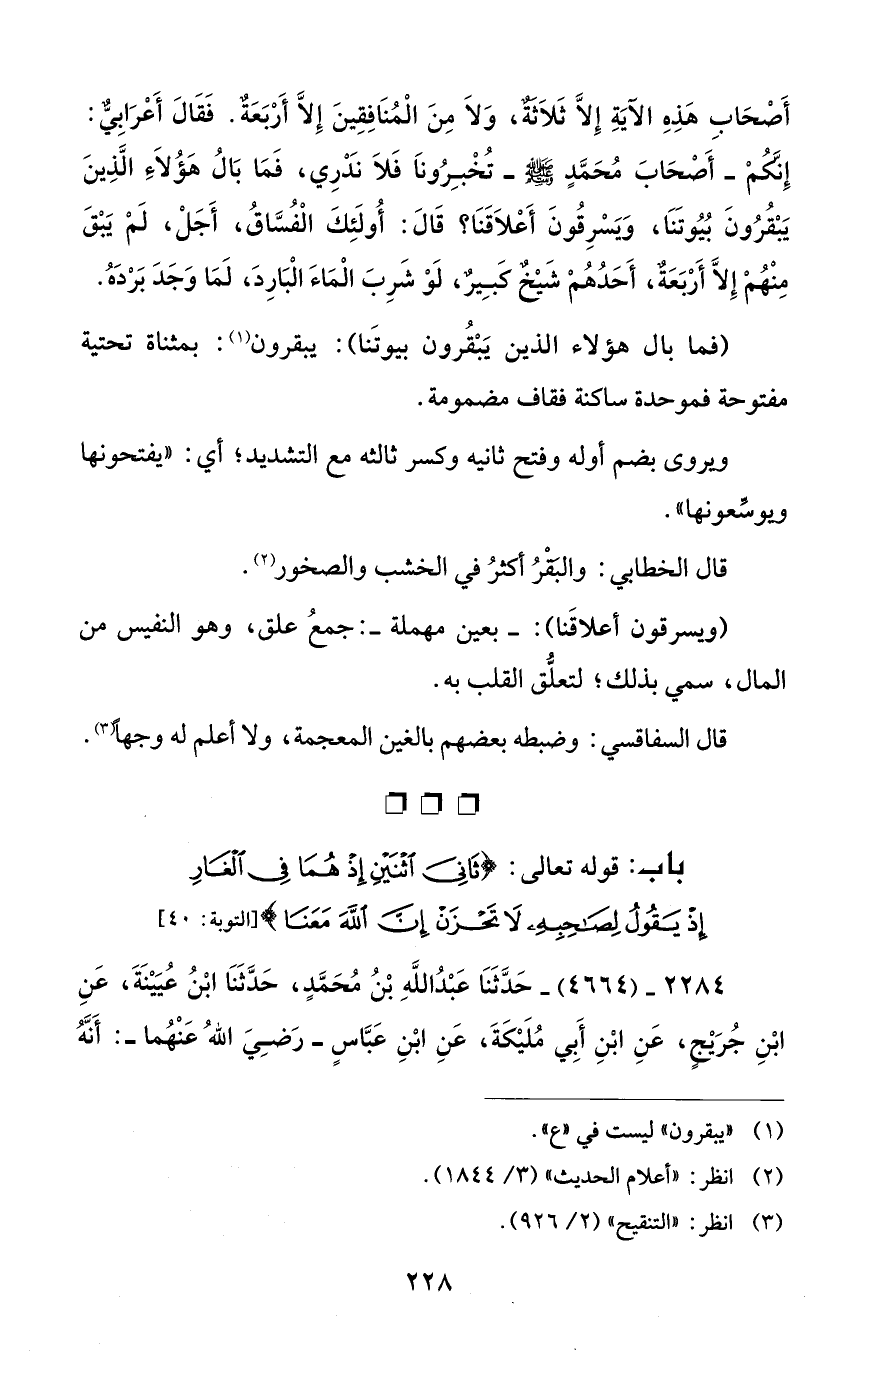 أَصْحَابِ هَذِهِ الآيَةِ إِلاَّ ثَلاَثَةٌ، وَلاَ مِنَ الْمُنَافِقِينَ إِلاَّ أَرْبَعَةٌ. فَقَالَ أَعْرَابِيٌّ:
إِنَّكُمْ - أَصْحَابَ مُحَمَّدٍ ﷺ - تُخْبِرُونَا فَلاَ نَدْرِي، فَمَا بَالُ هَؤُلاَءِ الَّذِينَ
يَبْقُرُونَ بُيُوتَنَا، وَيَسْرِقُونَ أَعْلاَقَنَا؟ قَالَ: أُولَئِكَ الْفُسَّاقُ، أَجَلْ، لَمْ يَبْقَ
مِنْهُمْ إِلاَّ أَرْبَعَةٌ، أَحَدُهُمْ شَيْخٌ كَبِيرٌ، لَوْ شَرِبَ الْمَاءَ الْبَارِدَ، لَمَا وَجَدَ بَرْدَهُ.
(فما بال هؤلاء الذين يَبْقُرون بيوتَنا): يبقرون(١): بمثناة تحتية
مفتوحة فموحدة ساكنة فقاف مضمومة.
ويروى بضم أوله وفتح ثانيه وكسر ثالثه مع التشديد؛ أي: «يفتحونها
ويوسِّعونها».
قال الخطابي: والبَقْرُ أكثرُ في الخشب والصخور(٢).
(ويسرقون أعلاقَنا): - بعين مهملة -: جمعُ علق، وهو النفيس من
المال، سمي بذلك؛ لتعلُّق القلب به.
قال السفاقسي: وضبطه بعضهم بالغين المعجمة، ولا أعلم له وجهاً(٣).
باب: قوله تعالى: ﴿ثَانِيَ ٱثْنَيْنِ إِذْ هُمَا فِي ٱلْغَارِ
إِذْ يَقُولُ لِصَٰحِبِهِۦ لَا تَحْزَنْ إِنَّ ٱللَّهَ مَعَنَا﴾ [التوبة: ٤٠]
٢٢٨٤ - (٤٦٦٤) - حَدَّثَنَا عَبْدُاللَّهِ بْنُ مُحَمَّدٍ، حَدَّثَنَا ابْنُ عُيَيْنَةَ، عَنِ
ابْنِ جُرَيْجٍ، عَنِ ابْنِ أَبِي مُلَيْكَةَ، عَنِ ابْنِ عَبَّاسٍ - رَضِيَ اللهُ عَنْهُما -: أَنَّهُ
(١) «يبقرون» ليست في «ع».
(٢) انظر: «أعلام الحديث» (٣/ ١٨٤٤).
(٣) انظر: «التنقيح» (٢/ ٩٢٦).
٢٢٨